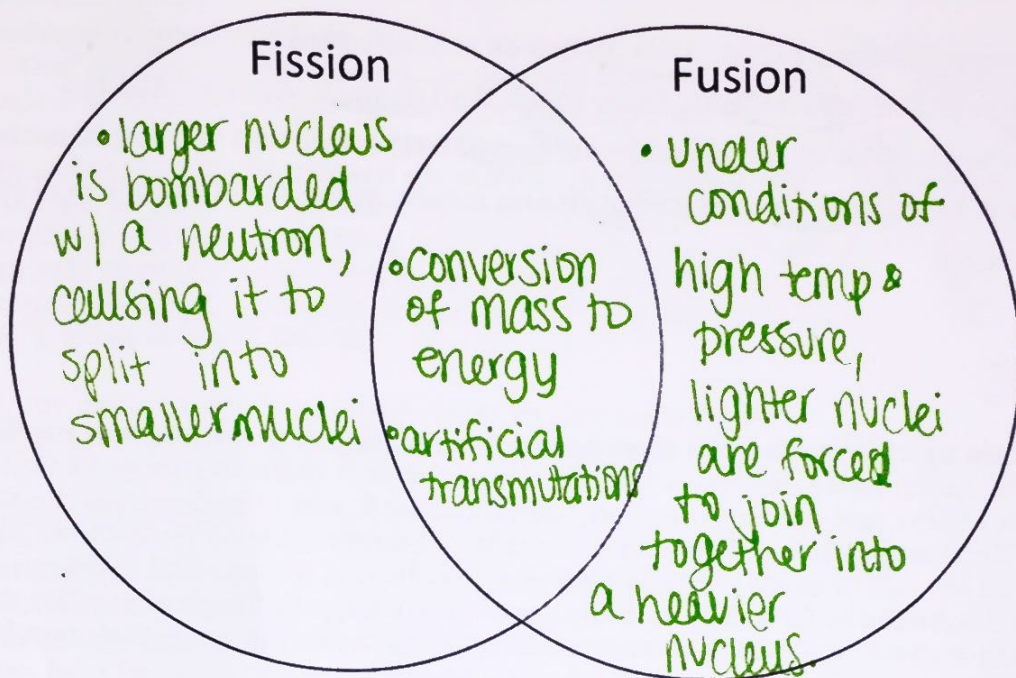 Fission
• larger nucleus
is bombarded
w/ a neutron,
causing it to
split into
smaller nuclei
• conversion
of mass to
energy
• artificial
transmutations
Fusion
• under
conditions of
high temp &
pressure,
lighter nuclei
are forced
to join
together into
a heavier
nucleus.